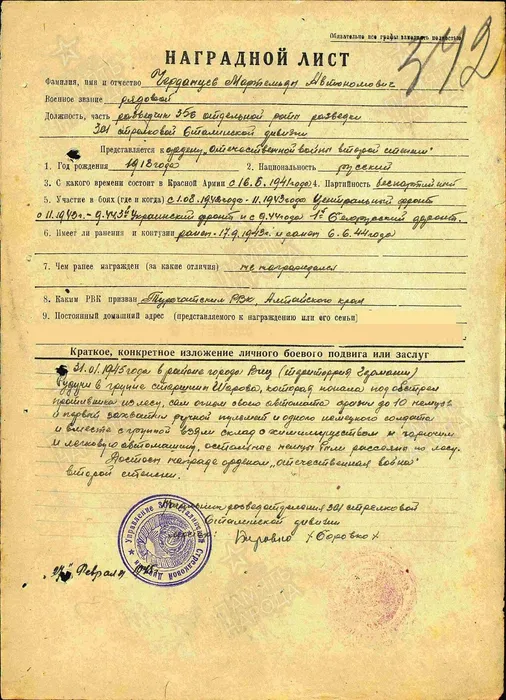 Обязательно все графы заполнять полностью
342
НАГРАДНОЙ ЛИСТ
Фамилия, имя и отчество Черданцев Мартемьян Автономович
Военное звание рядовой
Должность, часть разведчик 356 отдельной роты разведки
301 стрелковой Сталинской дивизии
Представляется к ордену „Отечественной войны второй степени"
1. Год рождения 1918 года 2. Национальность русский
3. С какого времени состоит в Красной Армии с 16.5.1941 года 4. Партийность беспартийный
5. Участие в боях (где и когда) с 1.08.1943 года - 11.1943 г. Центральный фронт
с 11.1943 г. - 9.44 3й Украинский фронт и с 9.44 года 1й Белорусский фронт.
6. Имеет ли ранения и контузии ранен - 17.9.1943 г. и ранен 6.6.44 года
7. Чем ранее награжден (за какие отличия) не награждался
8. Каким РВК призван Турочакским РВК, Алтайского края
9. Постоянный домашний адрес (представляемого к награждению или его семьи)
Краткое, конкретное изложение личного боевого подвига или заслуг
31.01.1945 года в районе города (территория Германии)
будучи в группе старшины Шарова, которая попала под обстрел
противника из лесу, сам огнем своего автомата сразил до 10 немцев
и первый захватил ручной пулемет и одного немецкого солдата
и вместе с группой взяли склад с химимуществом и горючим
и легковую автомашину, остальные немцы были рассеяны по лесу.
Достоин награде орденом „Отечественная война"
второй степени.
Начальник разведотделения 301 стрелковой
Сталинской дивизии
Боровко
Управление 301 Сталинской Стрелковой Дивизии
Февраля 1945